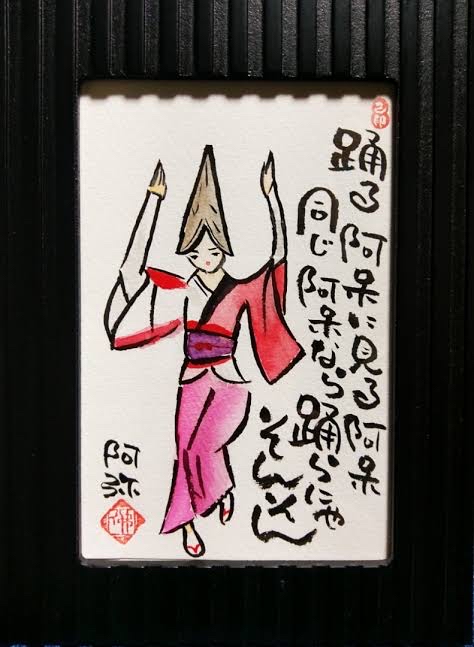 踊る阿呆に見る阿呆
同じ阿呆なら踊らにゃ
そんそん
阿弥